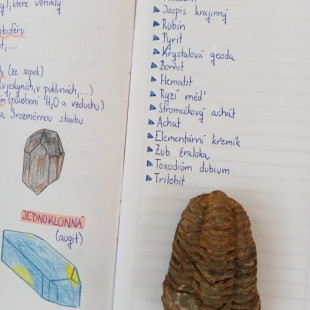 vy), které vznikly
litosféru.
ít,...
dy (ze sopek)
v jeskyních, v puklinách,...)
m (působení H₂O a vzduchu)
a 3rozměrnou stavbu
JEDNOKLONNÁ
(augit)
Jaspis krajinný
Rubín
Pyrit
Krystalová geoda
Bornit
Hematit
Ryzí měď
Stromečkový achát
Achat
Elementární křemík
Zub žraloka
Toxodium dubium
Trilobit